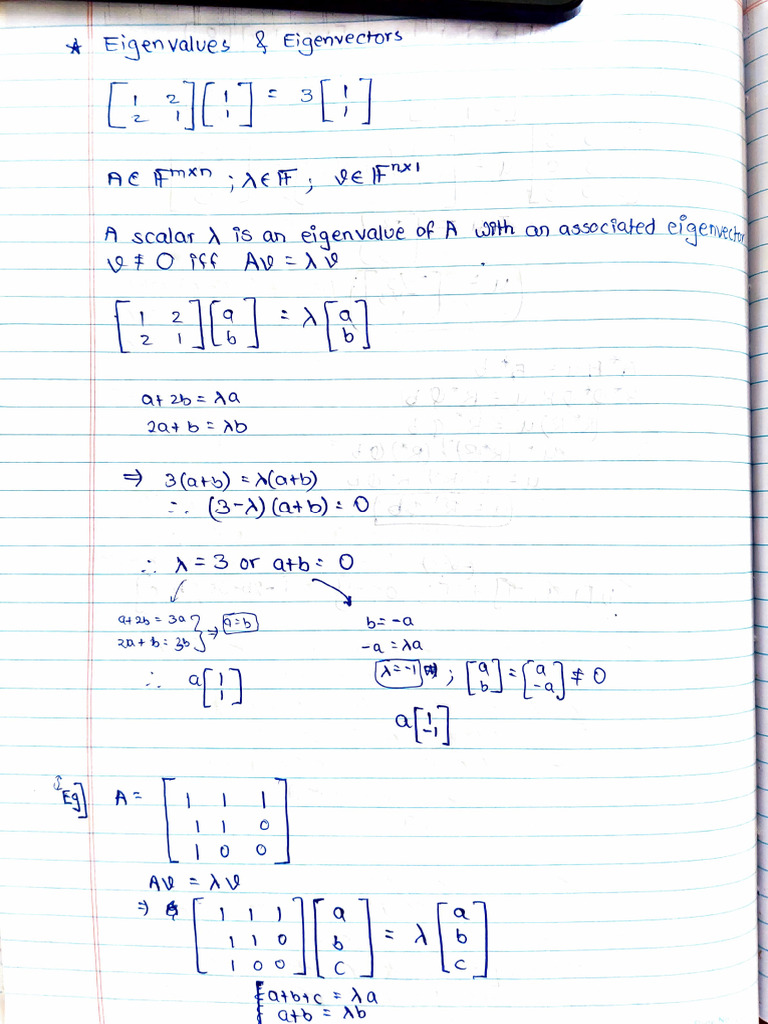 * Eigenvalues & Eigenvectors
[1 2; 2 1][1; 1] = 3[1; 1]
A ∈ F^{n×n} ; λ ∈ F ; v ∈ F^{n×1}
A scalar λ is an eigenvalue of A with an associated eigenvector
v ≠ 0 iff Av = λv
[1 2; 2 1][a; b] = λ[a; b]
a + 2b = λa
2a + b = λb
⇒ 3(a+b) = λ(a+b)
∴ (3-λ)(a+b) = 0
∴ λ = 3 or a+b = 0
a+2b = 3a
2a+b = 3b } ⇒ a=b
∴ a[1; 1]
b = -a
-a = λa
λ = -1 ; [a; b] = [a; -a] ≠ 0
a[1; -1]
Eg] A = [1 1 1; 1 1 0; 1 0 0]
Av = λv
⇒ [1 1 1; 1 1 0; 1 0 0][a; b; c] = λ[a; b; c]
a+b+c = λa
a+b = λb